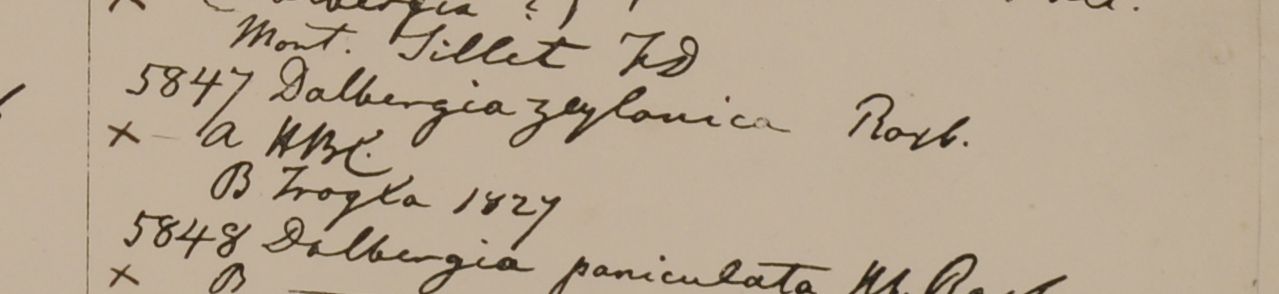 Mont. Sillet FD
5847 Dalbergia zeylanica Roxb.
× a HBC.
B Trogla 1827
5848 Dalbergia paniculata Hb. Roxb
× B